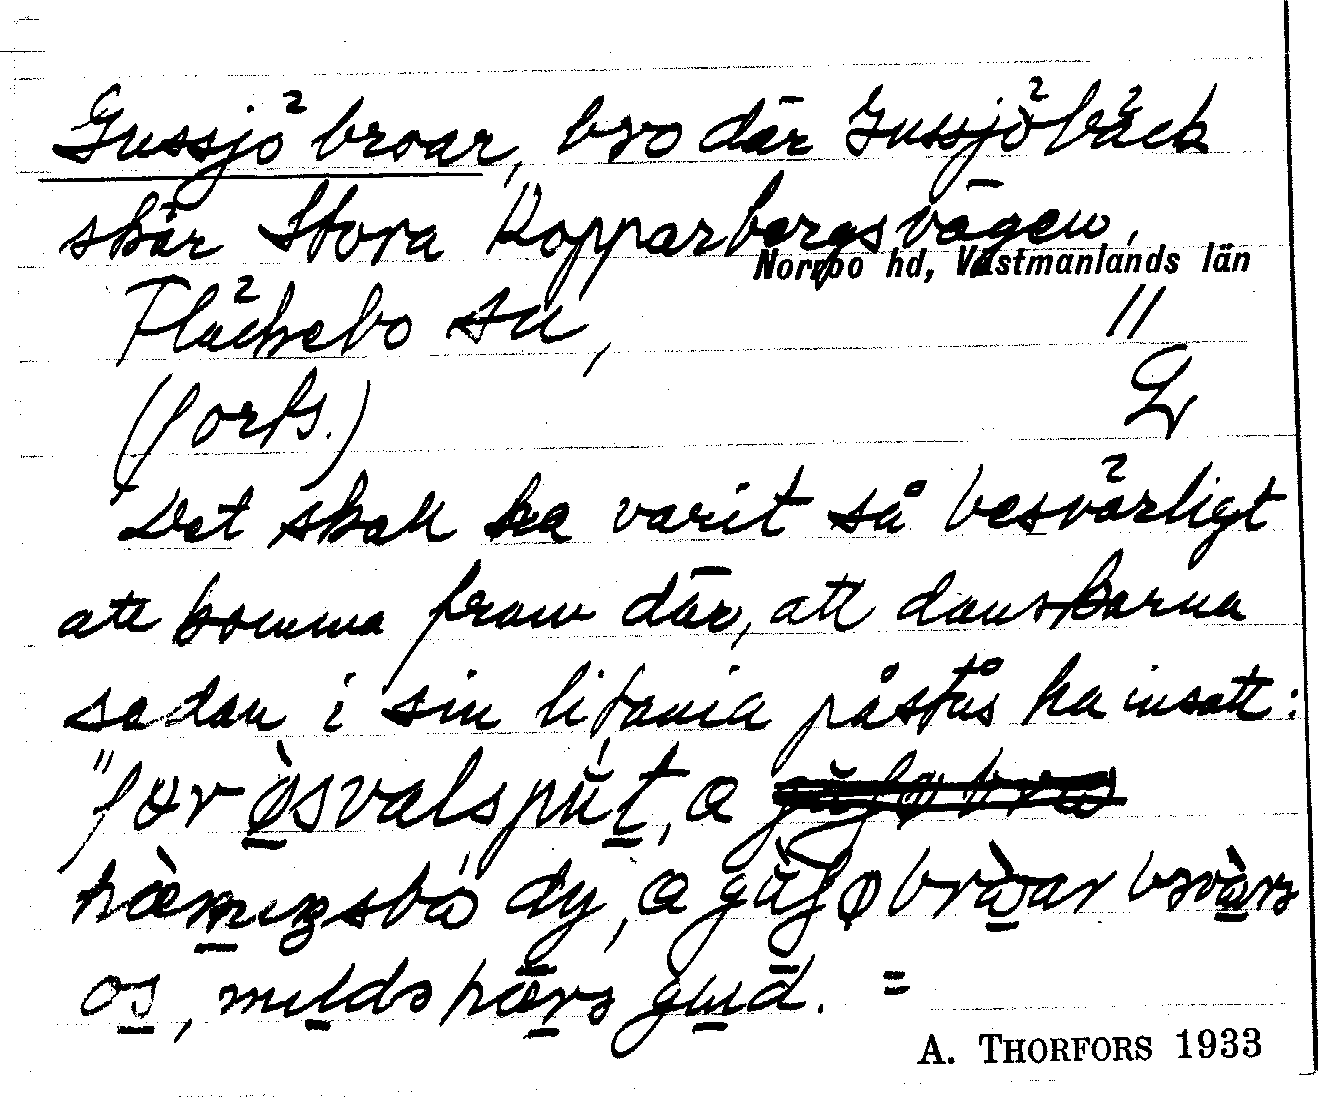 Gussjöbroar, bro där Gussjöbäck
skär Stora Kopparbergsvägen,
Norrbo hd, Västmanlands län
Fläckebo sn, //
(forts.)
Det skall ha varit så besvärligt
att komma fram där, att danskarna
sedan i sin litania påstås ha insatt:
"før òsvalspùt, o
hæ̀mɩŋsbo dy, o gùʃøbròar bɛvàrɛ
os, mɩldɛ hærɛ gud. =
A. THORFORS 1933